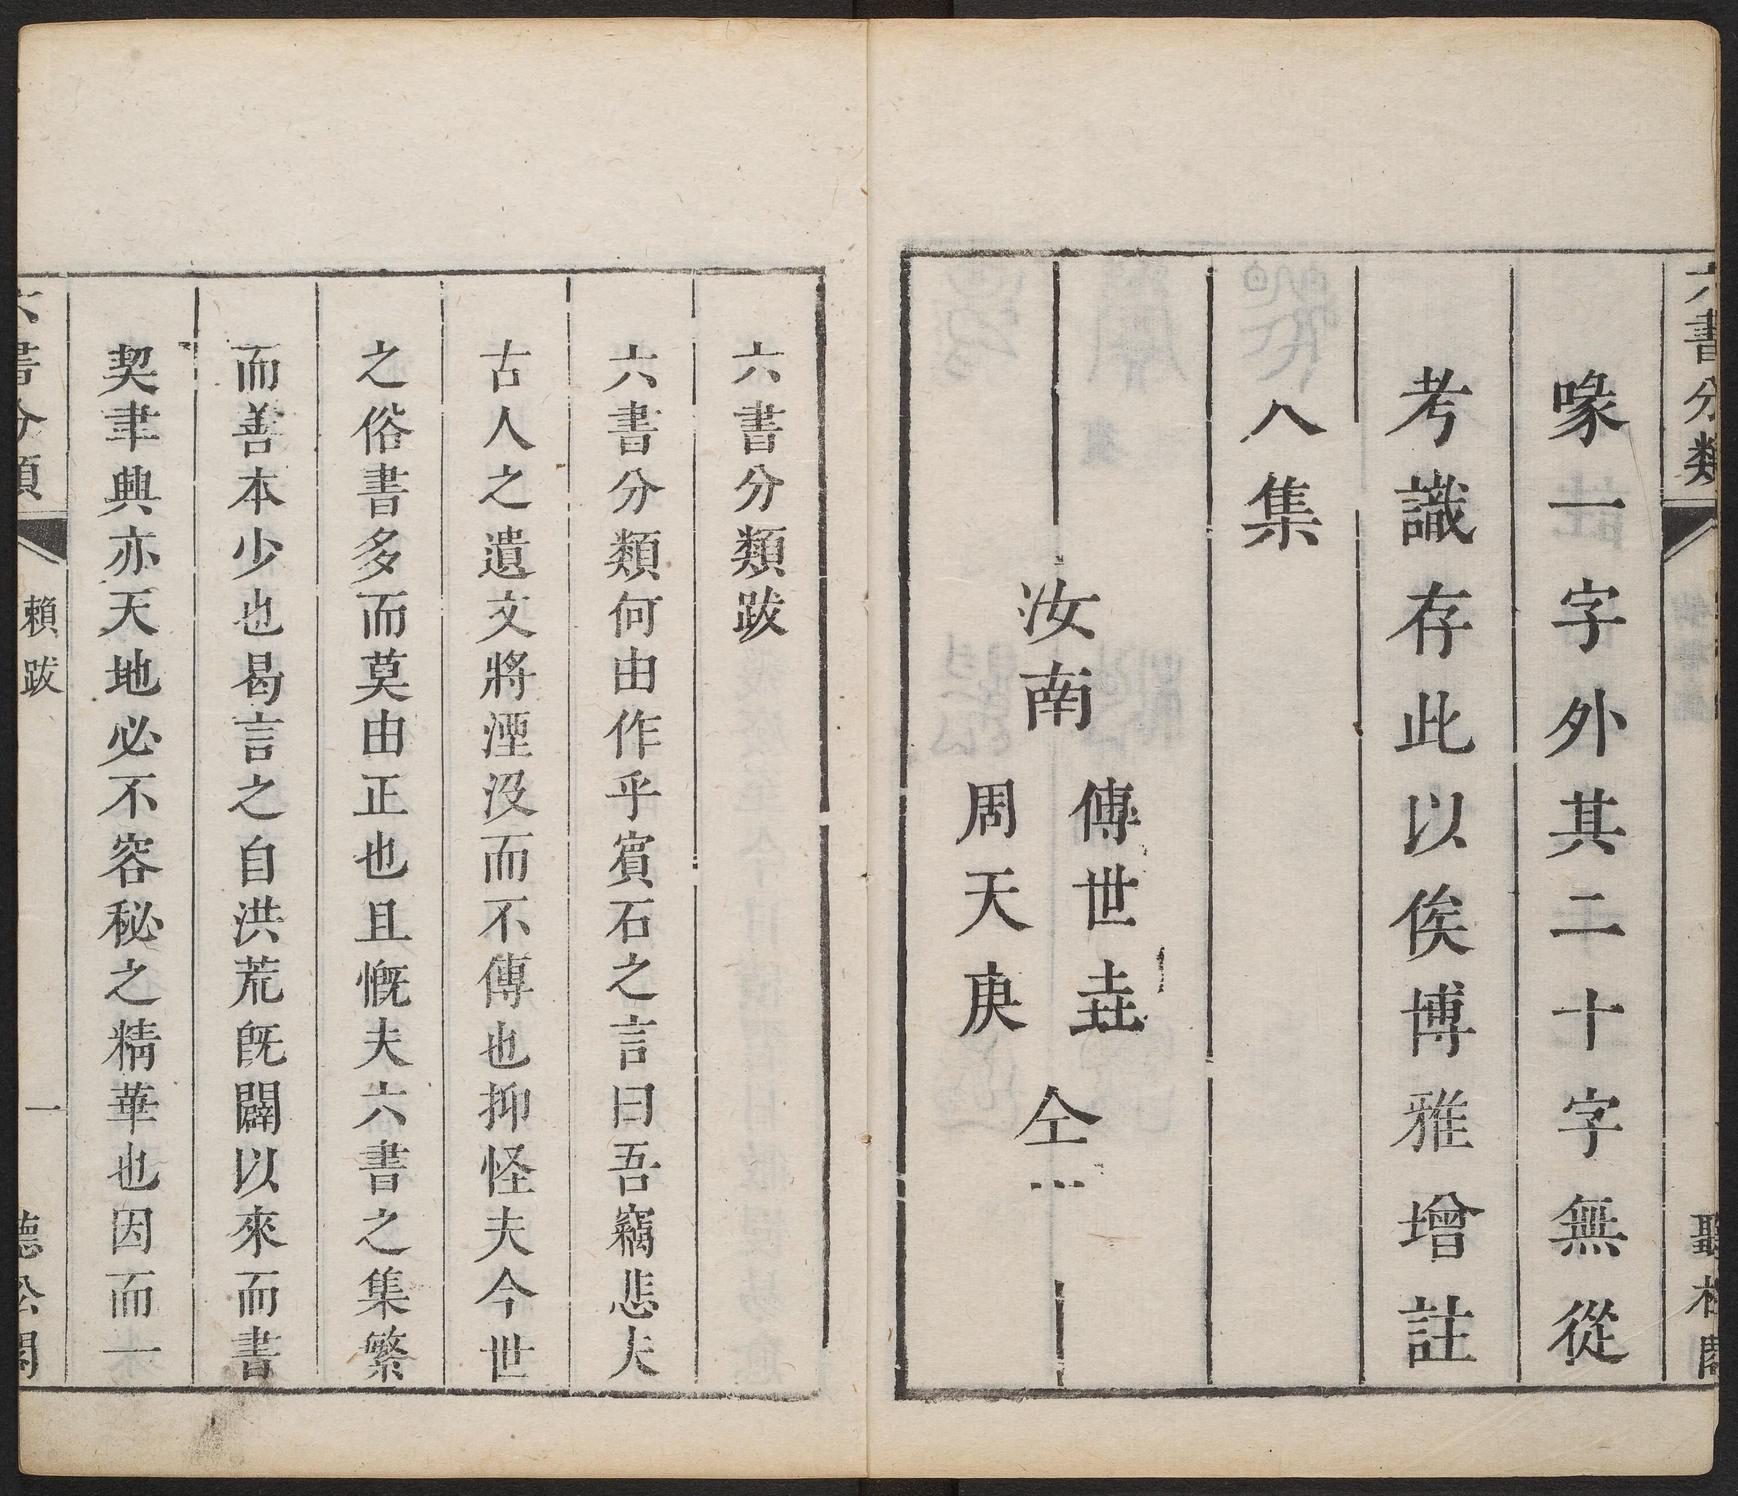 六書分類
聽松閣
喙一字外其二十字無從
考識存此以俟博雅增註
八集
汝南
傅世垚
周天庚
仝
六書分類跋
六書分類何由作乎賔石之言曰吾竊悲夫
古人之遺文將湮沒而不傳也抑怪夫今世
之俗書多而莫由正也且慨夫六書之集繁
而善本少也曷言之自洪荒旣闢以來而書
契聿興亦天地必不容秘之精華也因而一
六書分類
賴跋
一
聽松閣